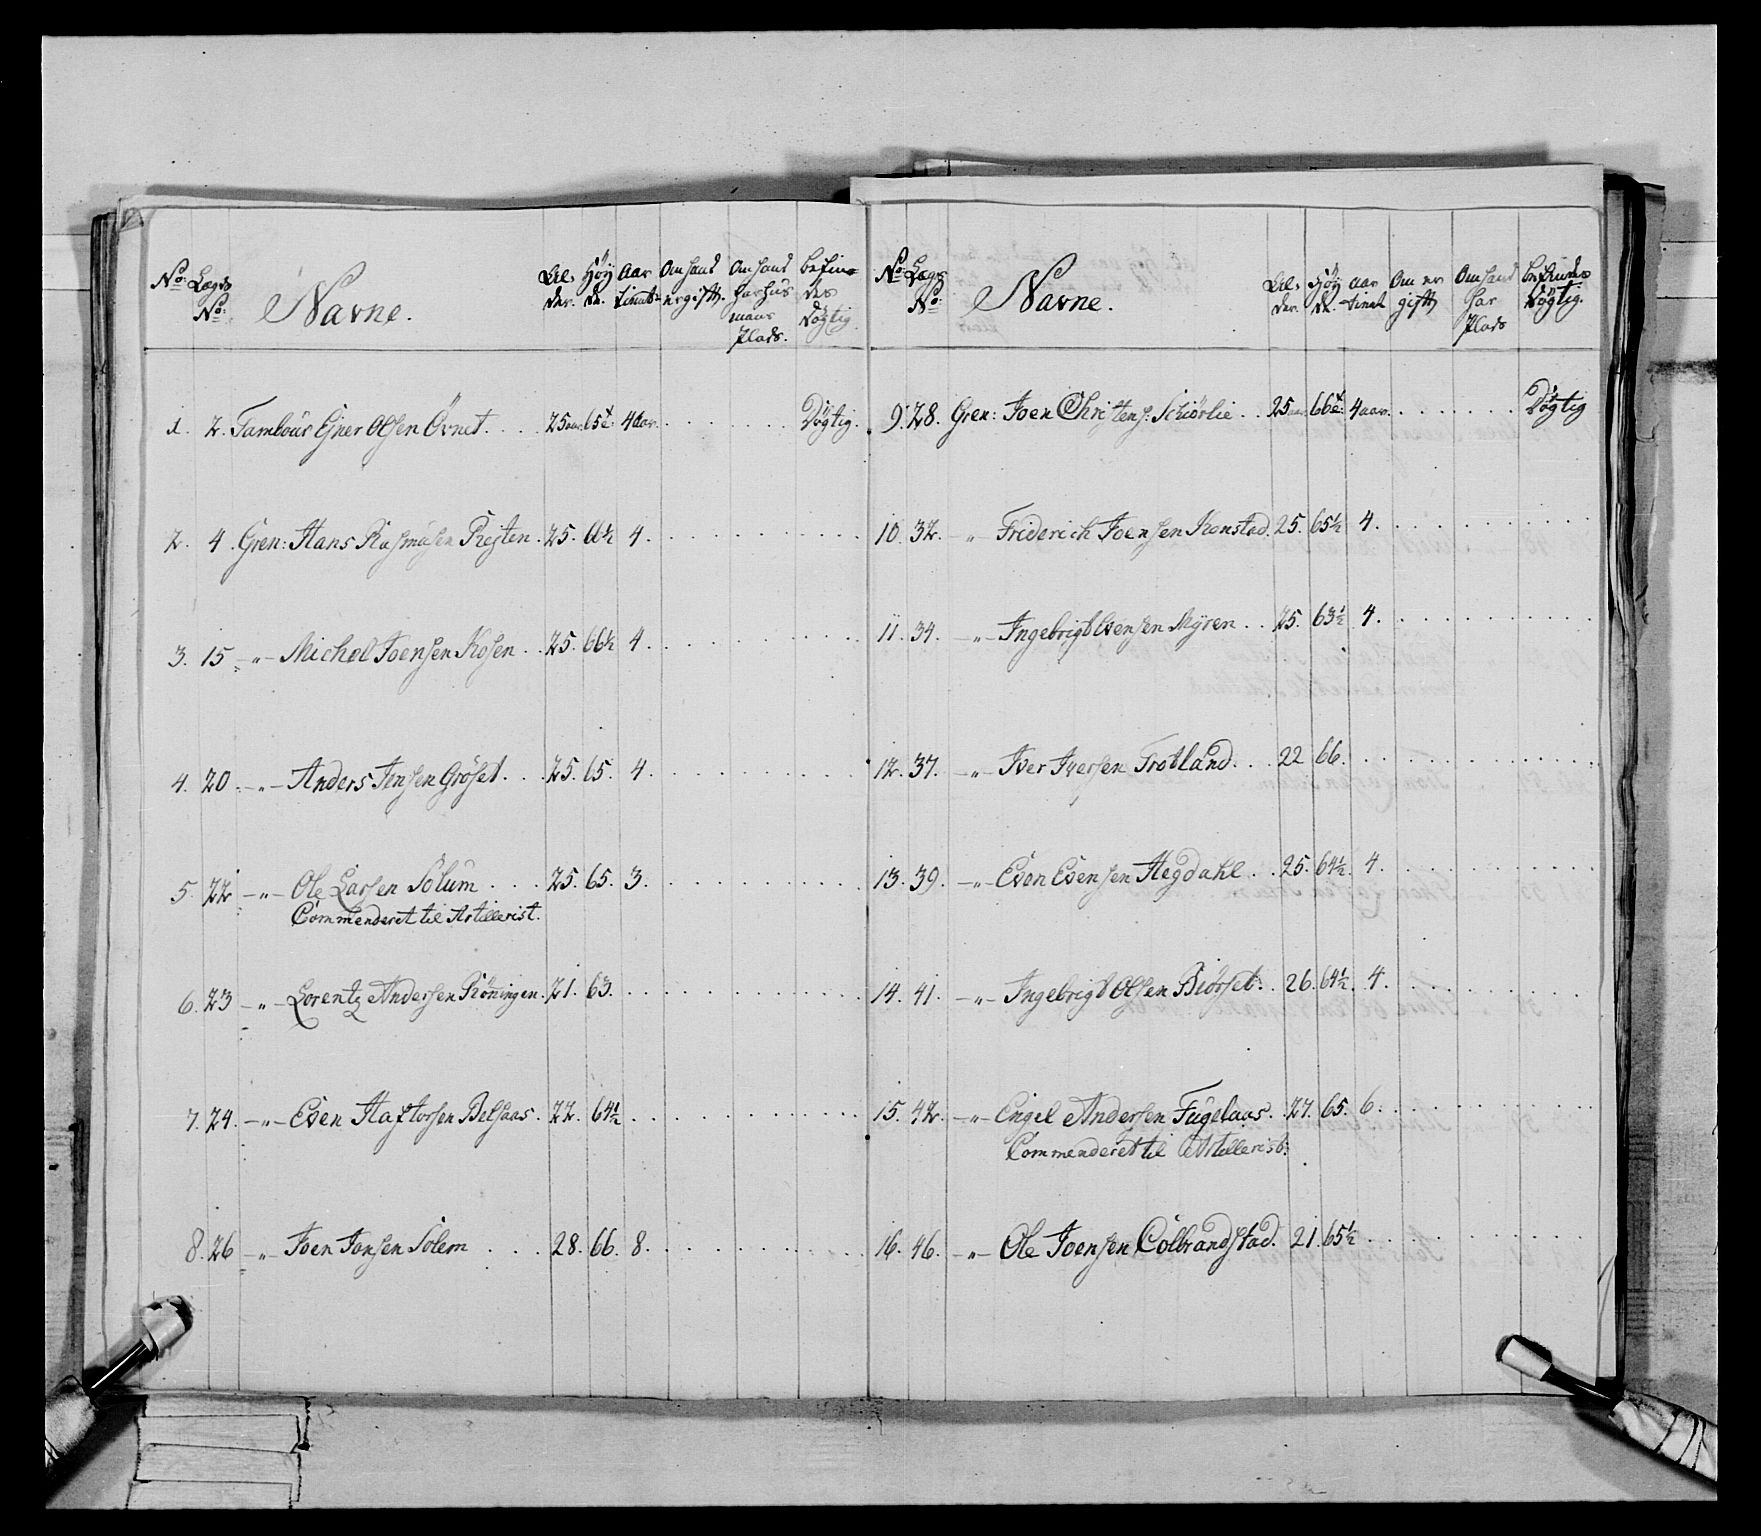 No: Lægds No: Navne. Al- der. Höy de. Aar tient Om hand er gift. Om hand har hus mans Plads. befin- des Dögtig.
1. 2. Tambour Ejner Olsen Övnet. . . . 25 aar. 65 t. 4 aar. . . . . . . . Dögtig.
2. 4. Gren: Hans Rasmusen . 25. 4. . . . . . . . .
3. 15 -"- Michel Joensen Kosen . . 25. 66½ 4. . . . . . . . .
4. 20 -"- Anders Jensen Gröset. . . 25. 65. 4. . . . . . . . .
5. 22 -"- Ole Larsen Solum . . . 25. 65. 3. . . . . . . . .
Commenderet til Artillerist.
6. 23 -"- Lorentz Andersen Röningen. 21. 63. . . . . . . . .
7. 24. -"- Even Haftorsen Belsaas. 22. 64½ . . . . . . . .
8. 26 -"- Joen Jonsen Solem . . . 28. 66. 8. . . . . . . . .
No: Lægds No: Navne. Al- der. Höy de. aar tient Om er gift Om hand har Plads befindes Dögtig.
9. 28. Gren: Joen Christens: Schiörlie . . 25 aar. 66 t: 4 aar. . . . . . . . Dögtig
10. 32. -"- Friderich Joensen Konstad. 25. 65½ 4. . . . . . . .
11. 34. -"- Ingebrigt Evensen Myren . . 25. 63½ 4. . . . . . . .
12. 37. -"- Iver Iversen Trotland. . . 22 66. . . . . . . . .
13. 39. -"- Even Evensen Hegdahl . . 25. 64½. 4. . . . . . . .
14. 41. -"- Ingebrigt Olsen Biörset. . 26. 64½. 4. . . . . . . .
15. 42. -"- Engel Andersen Fuglaas. . 27. 65. 6. . . . . . . .
Commenderet til Artillerist.
16. 46. -"- Ole Joensen Colbrandstad. 21. 65½ . . . . . . . .